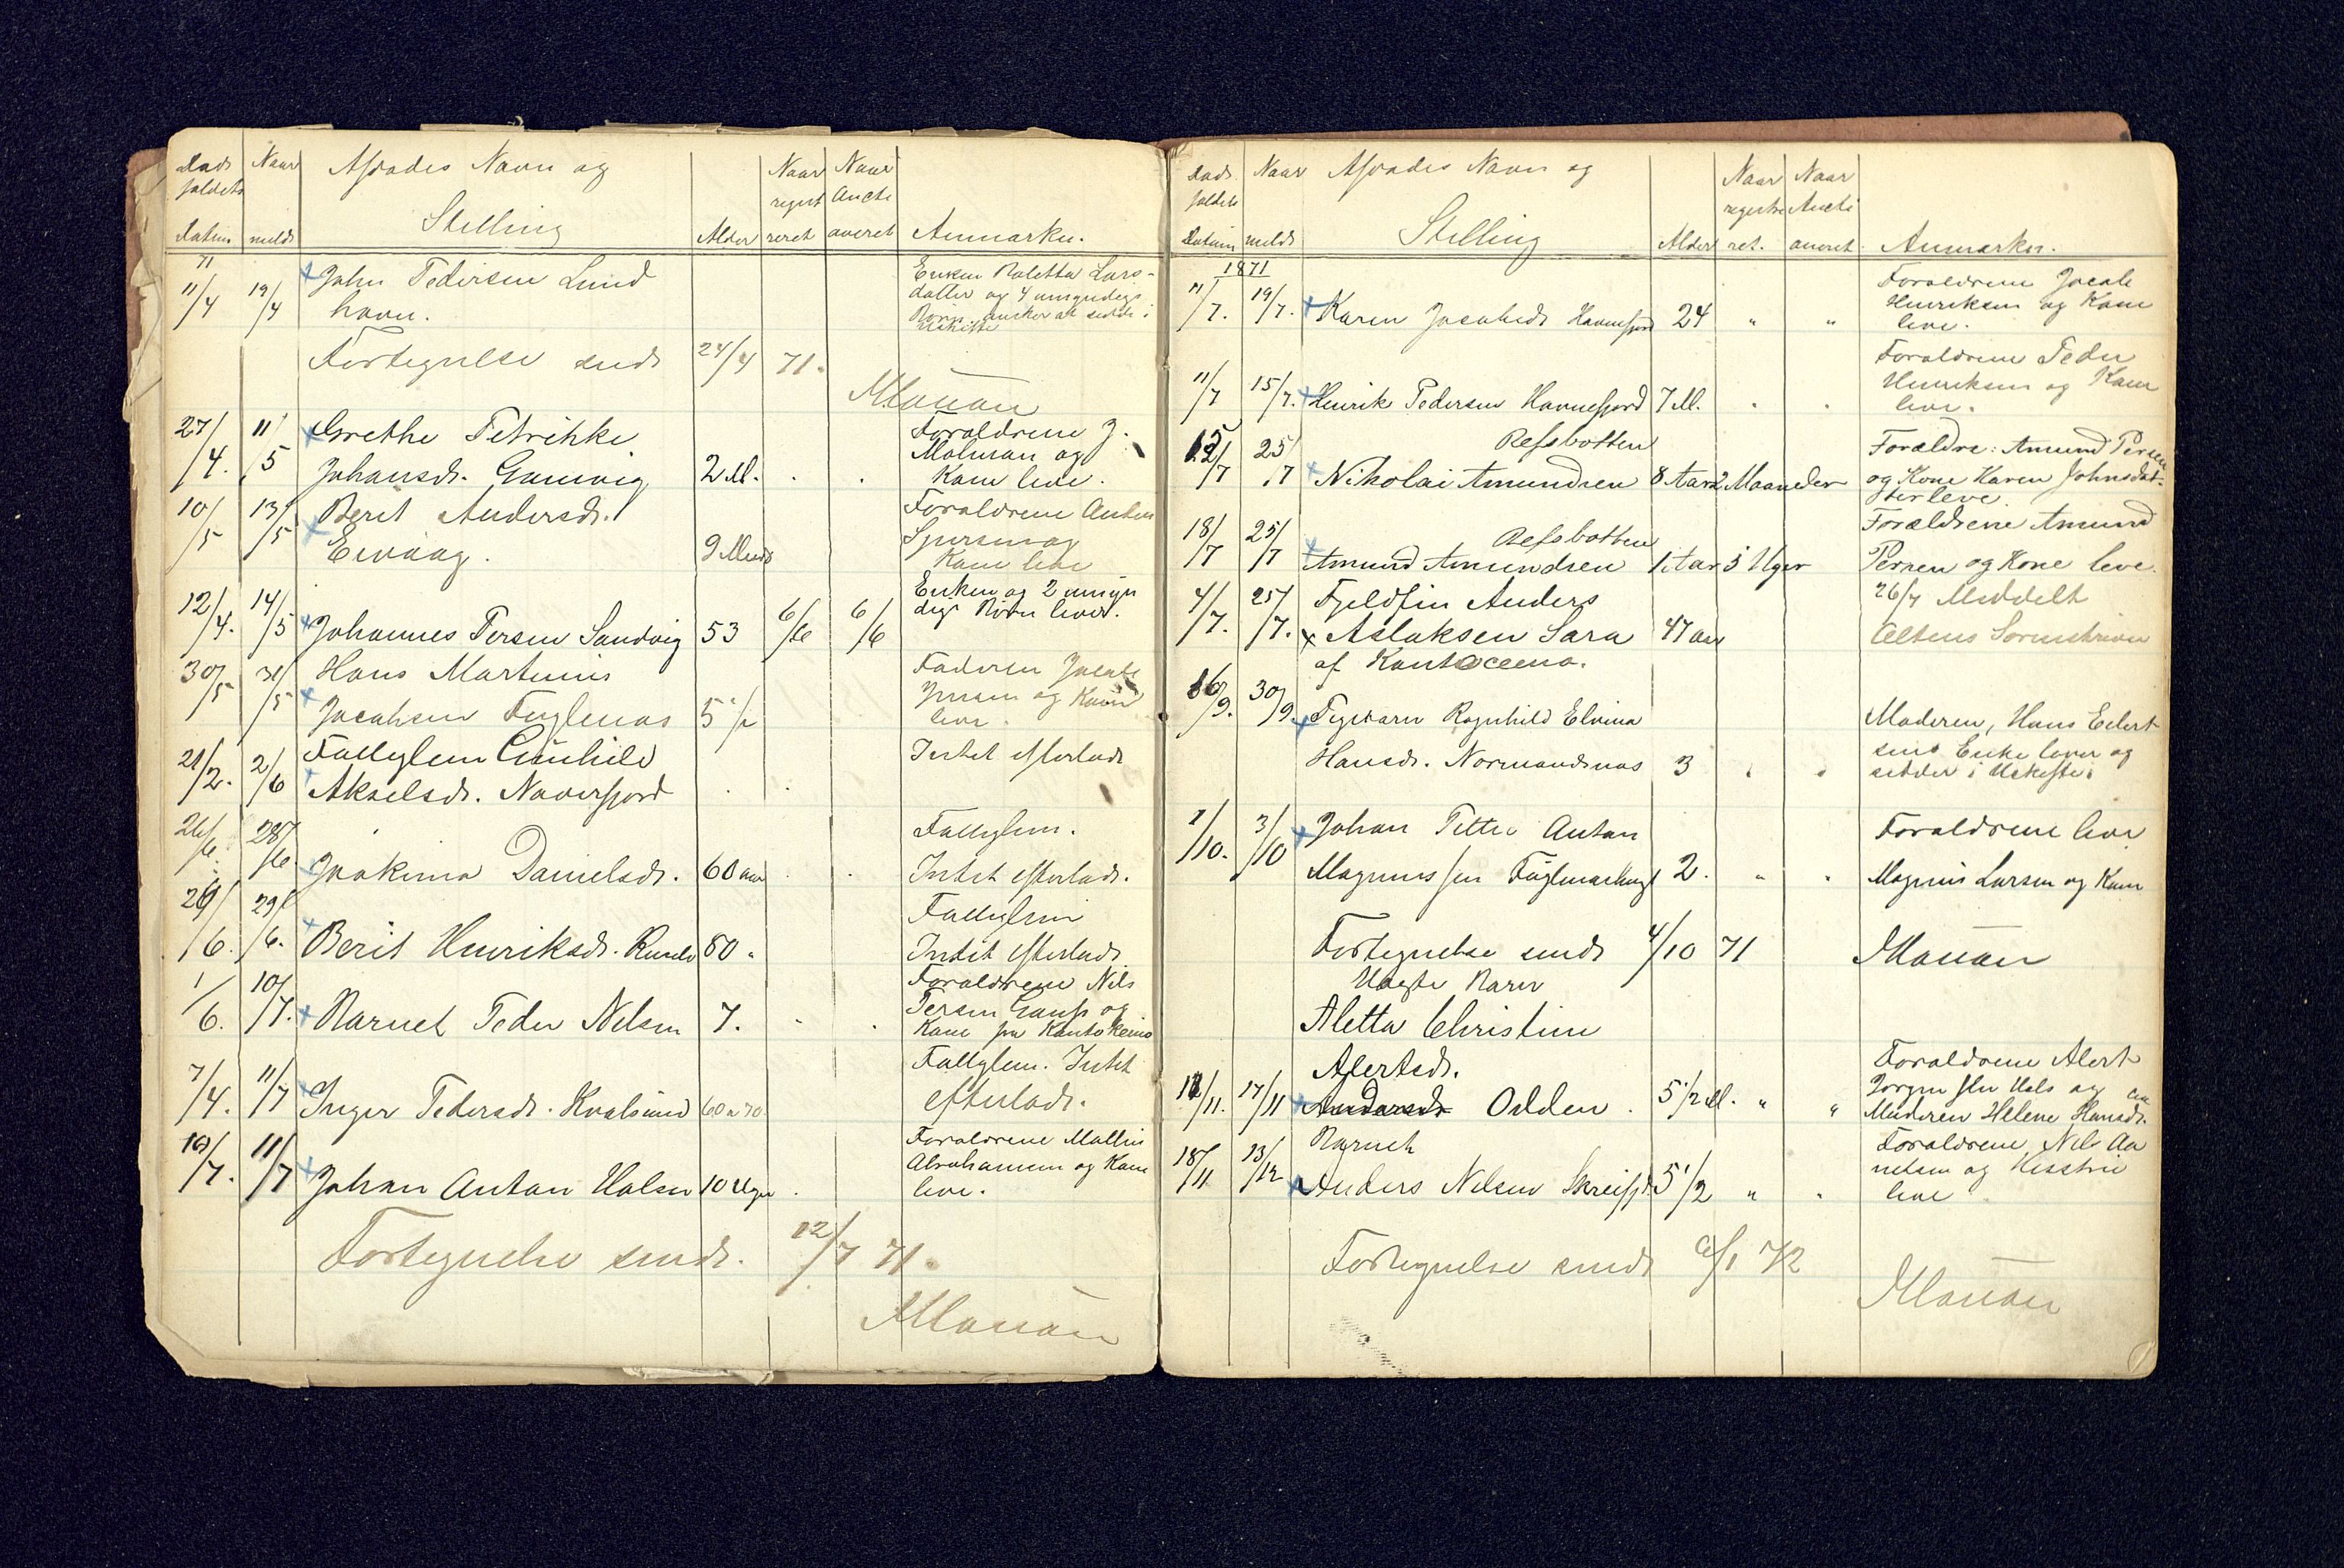 Døds
faldets
Datum
Naar
meldt
Afdødes Navn og
Stilling
Alder
Naar
regist
reret
Naar
Aucti
oneret
Anmærkn.
71
11/4 19/4 John Pedersen Lund
havn.
Enken Lars-
datter og 4 umyndige
Børn, ønsker at sidde i
Uskifte
Fortegnelse sendt 24/4 71.
27/4. 11/5 Grethe Petrikke
Johansdr. Gamvig 2 M.
Forældrene J.
Molman og
Kone leve.
10/5 13/5 Berit Andersdr.
9 Mndr
Forældrene Anders
Kone leve
12/4. 14/5 Johannes Persen Sandvig 53 6/6 6/6
Enken og 2 umyn
dige Børn lever.
30/5 31/5 Hans Martinus
Jacobsen Fuglenæs 5 1/2
Faderen Jacob
Jensen og Kone
leve.
21/2. 2/6 Fattiglem Gunhild
Akselsdr. Naverfjord
Intet efterladt
26/6. 28/6. Joakima Danielsdr. 60 aar
Fattiglem.
Intet efterladt.
26/6. 29/6. Berit Henriksdr. 80 "
Fattiglem
Intet efterladt.
1/6. 10/7. Barnet Peder Nilsen 7.
Forældrene Nils
Persen Gaup og
Kone fra Kautokeino
7/4. 11/7 Inger Pedersdr. Kvalsund 60 a 70
Fattiglem. Intet
efterladt.
10/7. 11/7 Johan Anton Halsen 10 Uger
Forældrene Mathis
Abrahamsen og Kone
leve.
Fortegnelse sendt. 12/7 71.
Døds
faldets
Datum
Naar
meldt
Afdødes Navn og
Stilling
Alder
Naar
registre
ret.
Naar
Aucti
oneret.
Anmærkn.
1871
11/7. 19/7. Karen Jacobsdr Havnefjord 24 " "
Forældrene Jacob
Henriksen og Kone
leve.
11/7 15/7. Henrik Pedersen Havnefjord 7 M.
Forældrene Peder
Henriksen og Kone
leve.
Refsbotten
/7 25/7 Nikolai Amundsen 8 Aar 2 Maaneder
Forældre: Amund Persen
og Kone Karen Johnsdat-
ter leve.
Refsbotten
18/7 25/7 Amund Amundsen 1 Aar 3 Uger
Forældrene Amund
Persen og Kone leve.
4/7. 25/7. Fjeldfin Anders
Aslaksen Sara 47 aar
af Kautoceino.
26/7 Meddelt
Altens Sorenskriver
/9. 30/9. Pigebarn Ragnhild Elvina
Hansdr. Normandsnæs 3
Moderen, Hans Eilert
sens Enke lever og
sidder i Uskifte.
1/10. 3/10 Johan Petter Anton
Magnussen 2. " "
Forældrene leve
Magnus Larsen og Kone
Fortegnelse sendt 4/10 71
Uægte Barn
Aletta Christine
Alertsdr.
/11. 17/11 Andersdr Odden. 5 1/2 M. " "
Forældrene Alert
Jørgensen Hals og
Moderen Helene Hansdr. leve
18/11 13/12 Barnet
Anders Nilsen 5 1/2 " "
Forældrene Nils
og Hustru
leve
Fortegnelse sendt /1 72